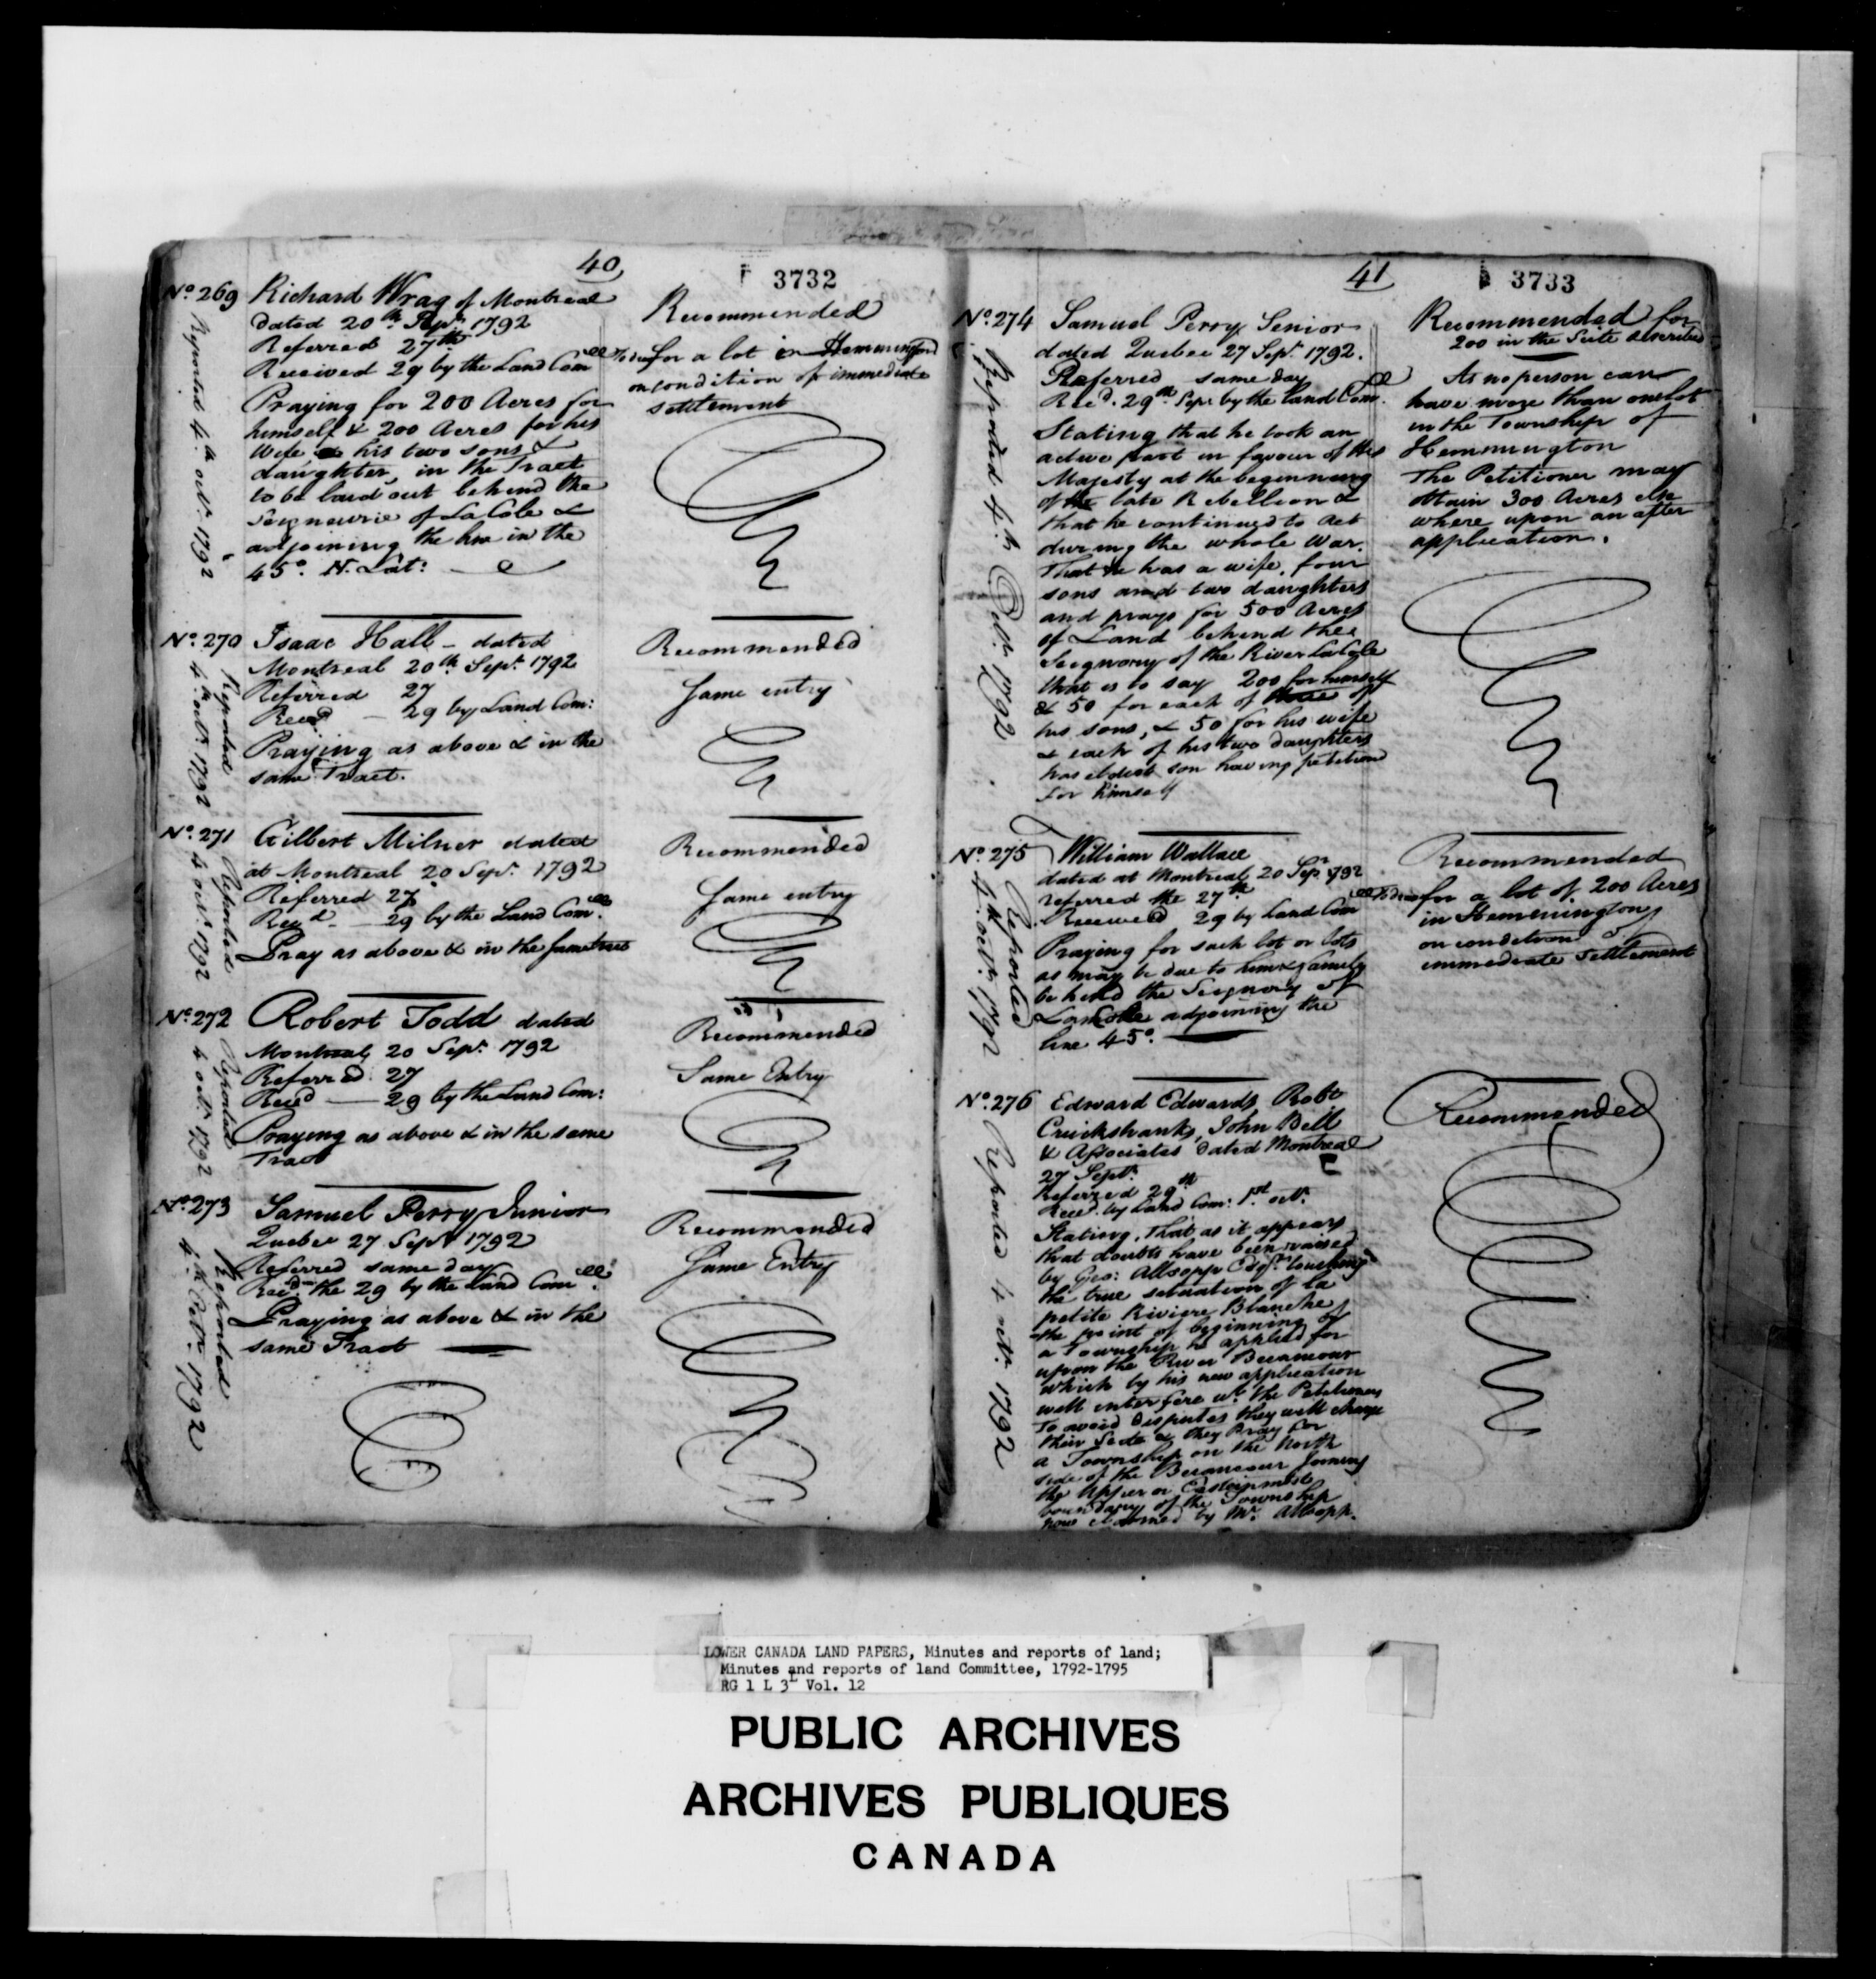 40
3732
No. 269
Reported 4th octr. 1792
Richard Wrag of Montreal
dated 20th Sepr. 1792
Referred 27th
Received 29 by the Land Comee
Praying for 200 Acres for
himself & 200 Acres for his
Wife his two sons &
daughter, in the Tract
to be laid out behind the
Seigneurie of LaCole &
adjoining the line in the
45°. N. Lat:
Recommended
for a lot in Hemmingford
on condition of immediate
settlement
No. 270
Reported
4th octr. 1792
Isaac Hall - dated
Montreal 20th Sept. 1792
Referred 27
Recd — 29 by Land Com:
Praying as above & in the
same Tract.
Recommended
Same entry
No. 271
Reported
4 octr. 1792
Gilbert Milner dated
at Montreal 20 Sepr. 1792
Referred 27
Recd — 29 by the Land Comee.
Pray as above & in the same tract
Recommended
Same entry
No. 272
Reported
4 octr. 1792
Robert Todd dated
Montreal 20 Sepr. 1792
Referred 27
Recd — 29 by the Land Com:
Praying as above & in the same
Tract
Recommended
Same Entry
No. 273
Reported
4th Octr. 1792
Samuel Perry Junior
Quebec 27 Sepr 1792
Referred same day
Recd. the 29 by the Land Comee.
Praying as above & in the
same Tract
Recommended
Same Entry
41
3733
No. 274
Reported 4th Octr. 1792
Samuel Perry Senior
dated Quebec 27 Sepr. 1792.
Referred same day
Recd. 29th Sepr by the Land Comee.
Stating that he took an
active part in favour of His
Majesty at the beginning
of the late Rebellion &
that he continued to Act
during the whole War.
That he has a wife, four
sons and two daughters
and prays for 500 Acres
of Land behind the
Seignory of the River LaCole
that is to say 200 for himself
& 50 for each of three of
his sons, & 50 for his wife
& each of his two daughters
his eldest son having petitioned
for himself
Recommended for
200 in the Scite described
As no person can
have more than one lot
in the Township of
Hemmington
The Petitioner may
obtain 300 Acres else
where upon an after
application.
No. 275
Reported
4th octr. 1792
William Wallace
dated at Montreal 20 Sepr 1792
referred the 27th
Received 29 by Land Comee
Praying for such lot or lots
as may be due to him & family
behind the Seignory of
LaCole adjoining the
line 45°.
Recommended
for a lot of 200 Acres
in Hemmington
on condition of
immediate settlement
No. 276
Reported 4 octr. 1792
Edward Edwards, Robt
Cruickshanks, John Bell
& Associates dated Montreal
27 Septr.
Referred 29th
Recd. by Land Com: 1st octr.
Stating, That as it appears
that doubts have been raised
by Geo: Allsopp Esqr. touching
the true situation of la
petite Riviere Blanche,
the point of beginning of
a Township he applied for
upon the River Becancour
which by his new application
will enterfere wt. the Petitioners
To avoid disputes they will change
their Scite & they Pray for
a Township on the North
side of the Becancour joining
the upper or Easternmost
boundary of the Township
now claimed by Mr. Allsopp.
Recommended
LOWER CANADA LAND PAPERS, Minutes and reports of land;
Minutes and reports of land Committee, 1792-1795
RG 1 L 3L Vol. 12
PUBLIC ARCHIVES
ARCHIVES PUBLIQUES
CANADA